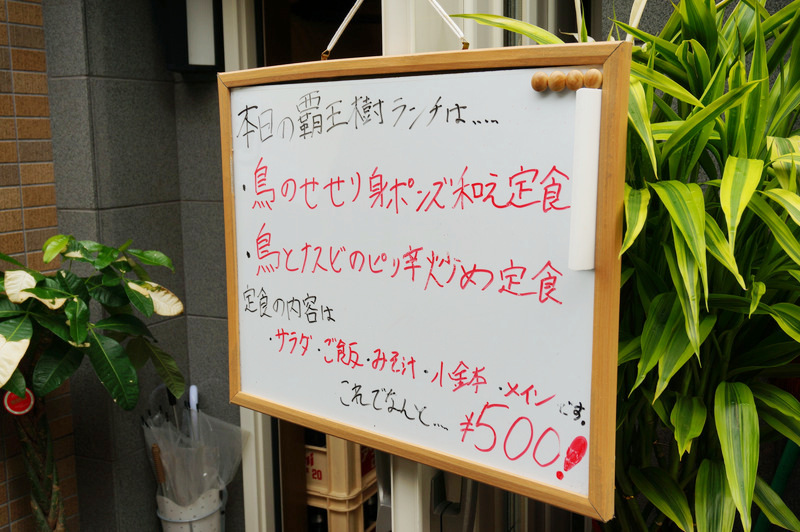 本日の覇王樹ランチは.....
・鳥のせせり身ポンズ和え定食
・鳥とナスビのピリ辛炒めつ定食
定食の内容は
・サラダ・ご飯・みそ汁・小鉢・メインです。
これでなんと....
¥500!